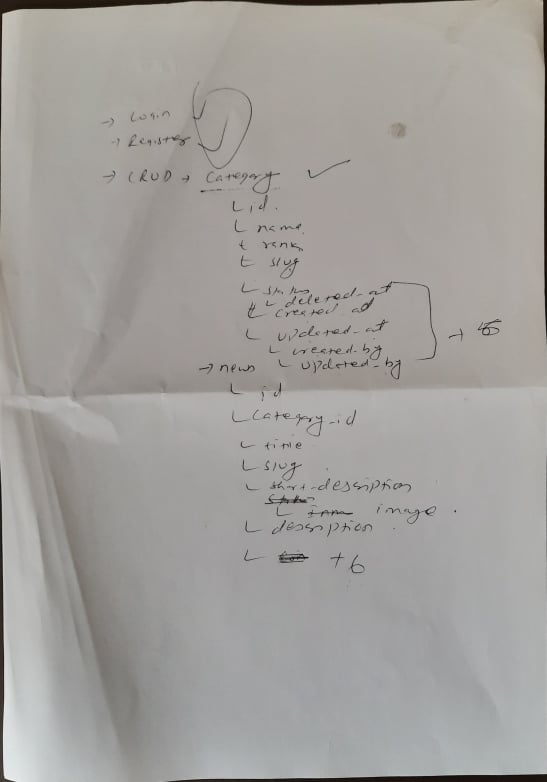 → Login
→ Register
→ CRUD → Category ✓
└ id.
└ name.
└ rank
└ slug
└ status
└ deleted_at
└ created_at
└ updated_at
└ created_by
→ news └ updated_by
└ id
└ category_id
└ title
└ slug
└ short-description
└ image.
└ description
└ +6